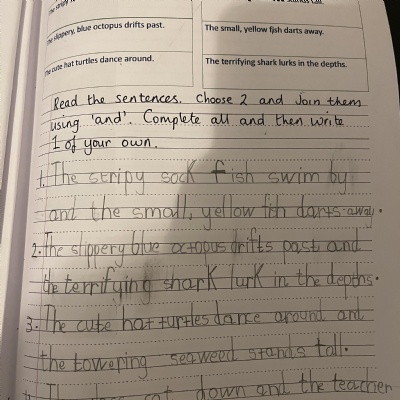 The slippery, blue octopus drifts past.
The small, yellow fish darts away.
The cute hat turtles dance around.
The terrifying shark lurks in the depths.
Read the sentences. Choose 2 and join them
using 'and'. Complete all and then write
1 of your own.
1. The stripy sock fish swim by
and the small, yellow fish darts away.
2. The slippery blue octopus drifts past and
the terrifying shark lurk in the depths.
3. The cute hat turtles dance around and
the towering seaweed stands tall.
down and the teacher